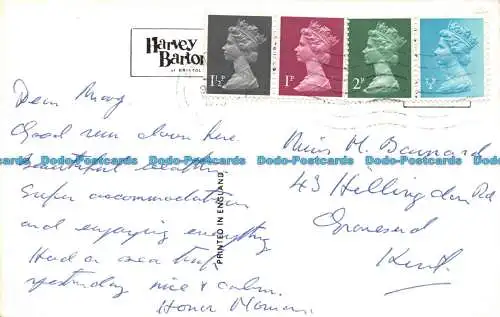 Harvey
Barton
of BRISTOL
1½P
1P
2P
½P
Dear Mary
Good run down here
Beautiful weather
Super accommodation
and enjoying everything
Had a sea trip
yesterday nice & calm.
Honor
PRINTED IN ENGLAND
Miss M.
43 Hillingdon Rd
Gravesend
Kent.
Dodo-Postcards Dodo-Postcards Dodo-Postcards Dodo-Postcards Dodo-Postcards